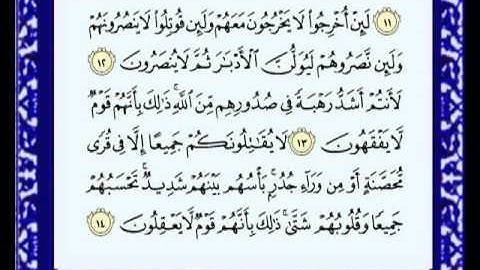 ١١ لَئِنْ أُخْرِجُوا۟ لَا يَخْرُجُونَ مَعَهُمْ وَلَئِن قُوتِلُوا۟ لَا يَنصُرُونَهُمْ
وَلَئِن نَّصَرُوهُمْ لَيُوَلُّنَّ ٱلْأَدْبَٰرَ ثُمَّ لَا يُنصَرُونَ ١٢
لَأَنتُمْ أَشَدُّ رَهْبَةً فِى صُدُورِهِم مِّنَ ٱللَّهِ ۚ ذَٰلِكَ بِأَنَّهُمْ قَوْمٌ
لَّا يَفْقَهُونَ ١٣ لَا يُقَٰتِلُونَكُمْ جَمِيعًا إِلَّا فِى قُرًى
مُّحَصَّنَةٍ أَوْ مِن وَرَآءِ جُدُرٍۭ ۚ بَأْسُهُم بَيْنَهُمْ شَدِيدٌ ۚ تَحْسَبُهُمْ
جَمِيعًا وَقُلُوبُهُمْ شَتَّىٰ ۚ ذَٰلِكَ بِأَنَّهُمْ قَوْمٌ لَّا يَعْقِلُونَ ١٤